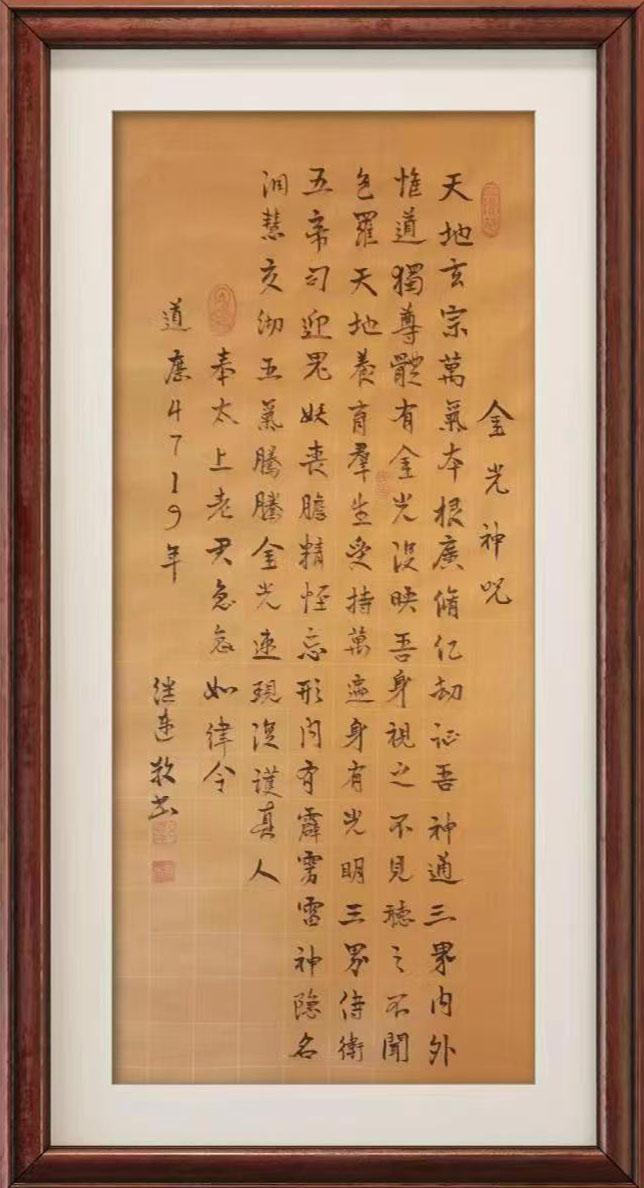 金光神咒
天地玄宗萬氣本根廣脩亿劫证吾神通三界内外
惟道獨尊體有金光映吾身視之不見聴之不聞
包羅天地養育羣生受持萬遍身有光明三界侍衛
五帝司迎鬼妖喪膽精怪忘形内有霹雳雷神隐名
洞慧交彻五氣騰騰金光速現護真人
奉太上老君急急如律令
道歷4719年
敬书